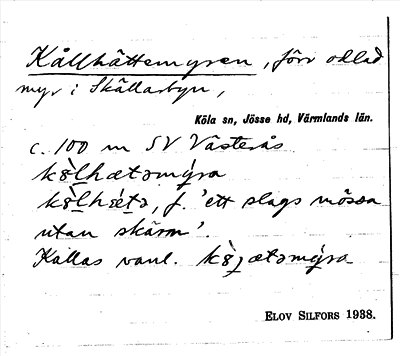 Kållhättemyren, förr odlad
myr i Skällarbyn,
Köla sn, Jösse hd, Värmlands län.
c. 100 m SV Västerås
kö̀l̲hætəmýra
kö̀l̲hǽt̲ə, f. 'ett slags mössa
utan skärm'.
Kallas vanl.
ELOV SILFORS 1938.